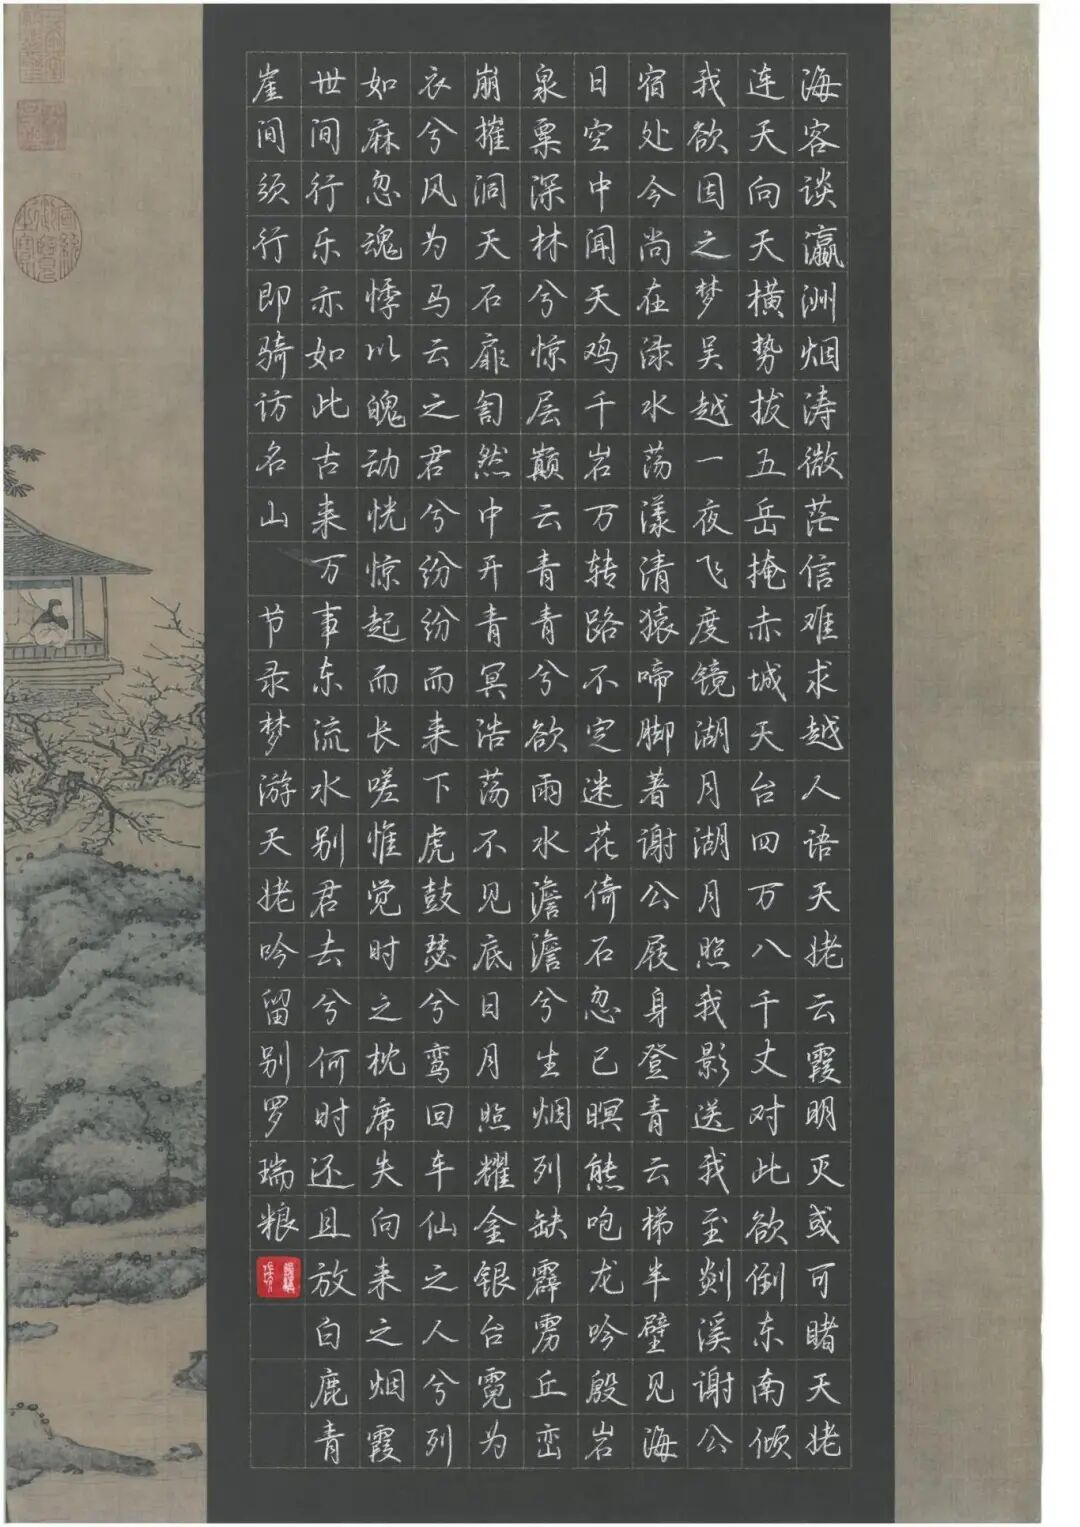 海客谈瀛洲烟涛微茫信难求越人语天姥云霞明灭或可睹天姥
连天向天横势拔五岳掩赤城天台四万八千丈对此欲倒东南倾
我欲因之梦吴越一夜飞度镜湖月湖月照我影送我至剡溪谢公
宿处今尚在渌水荡漾清猿啼脚著谢公屐身登青云梯半壁见海
日空中闻天鸡千岩万转路不定迷花倚石忽已暝熊咆龙吟殷岩
泉栗深林兮惊层巅云青青兮欲雨水澹澹兮生烟列缺霹雳丘峦
崩摧洞天石扉訇然中开青冥浩荡不见底日月照耀金银台霓为
衣兮风为马云之君兮纷纷而来下虎鼓瑟兮鸾回车仙之人兮列
如麻忽魂悸以魄动恍惊起而长嗟惟觉时之枕席失向来之烟霞
世间行乐亦如此古来万事东流水别君去兮何时还且放白鹿青
崖间须行即骑访名山 节录梦游天姥吟留别罗瑞粮